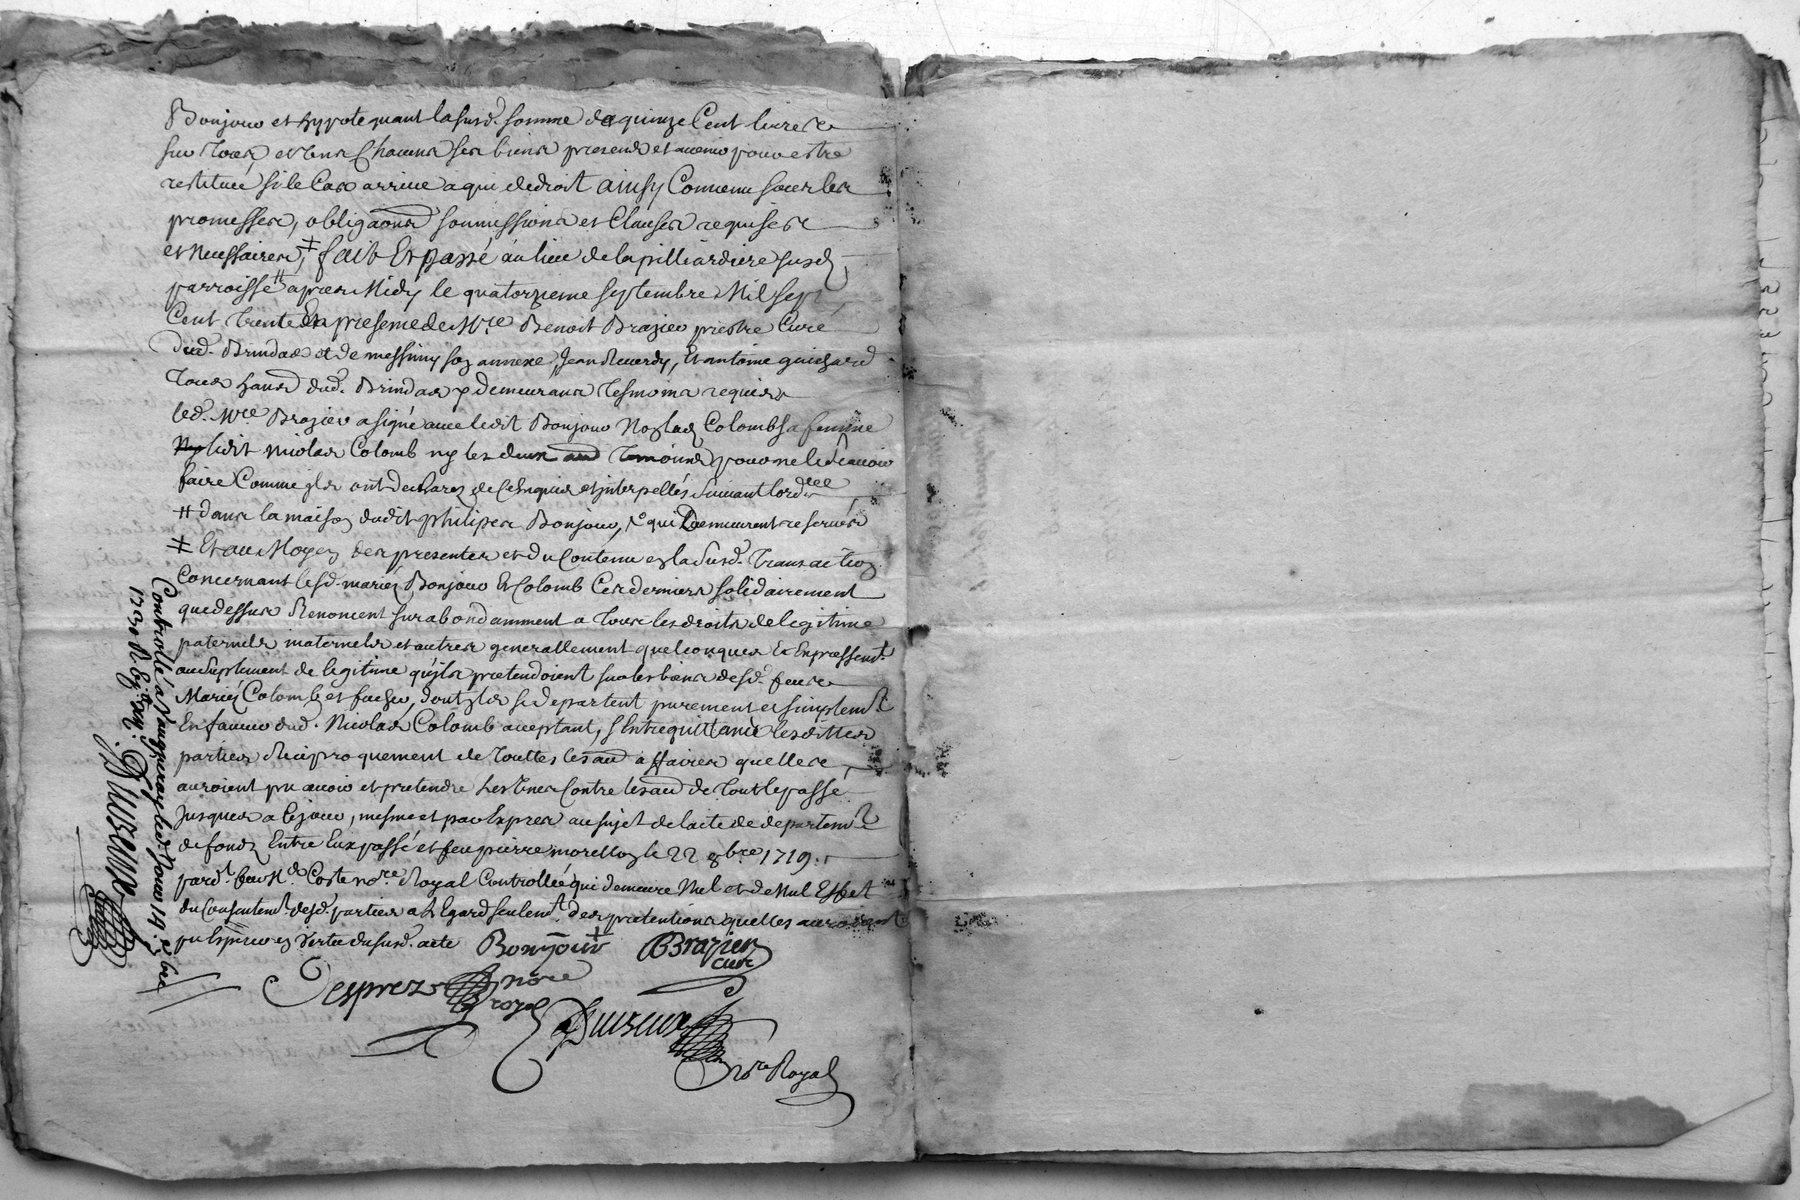 Bonjour et hypotequant la susd. somme de quinze Cent livres
sur Tous et uns Chacuns ses biens presens et avenir pour estre
restituée si le Cas arrive a qui de droit ainsy Convenu sous les
promesses, obligaons soumissions et Clauses requises
et necessaires, ‡ fait Et passé au lieu de la pilliardiere susd.
parroisse # apres Midy le quatorzieme septembre Mil sept
Cent Trente En presence de Mre Benoit Brazier prestre Curé
dud. Brindas et de messimy son annexe, Jean Reverdy, Et antoine guichard
Tous hans dud. Brindas y demeurans Tesmoins requis
led. Mre Brazier a signé avec ledit Bonjour Non lad. Colomb sa femme
ledit nicolas Colomb ny les deux Temoins pour ne le sçavoir
faire Comme ils ont declarez de Ce enquis et interpellés suivant lordee
# dans la maison dudit philipes Bonjour, qui demeurent reservés
‡ Et au Moyen des presentes et du Contenu en la susd. Transaction
Concernant lesd. mariez Bonjour Et Colomb Ces derniers solidairement
que dessus Renoncent surabondamment a Tous les droits de legitime
paternels maternels et autres generallement quelconques Et Expressemt.
au suplement de legitime quils pretendoient sur les biens desd. feus
Mariez Colomb et, dont ils se departent purement et simplemt.
En faveur dud. Nicolas Colomb acceptant, S'Entrequittant lesdittes
parties Reciproquement de Touttes les aud. affaires quelles
auroient pu avoir et pretendre Les Unes Contre les aud. de Tout le passé
Jusques a Ce jour, mesme et par Expres au sujet de lacte de departemt.
de fonds Entre Eux passé et feu pierre morellon le 22 8bre 1719.
pard.t feu Me. Coste nore. Royal Controllé qui demeure Nul et de Nul Effet
du Consentemt. desd. parties a L'Egard seulemt. des pretentions quelles auroient
pu Esperer en vertu du susd. acte Bonjour Brazier
curé
Desprez nore
royal
Duvieux
nore Royal
Controllé a Vaugneray led. Jour 14. 7bre
1730 R. Duvieux